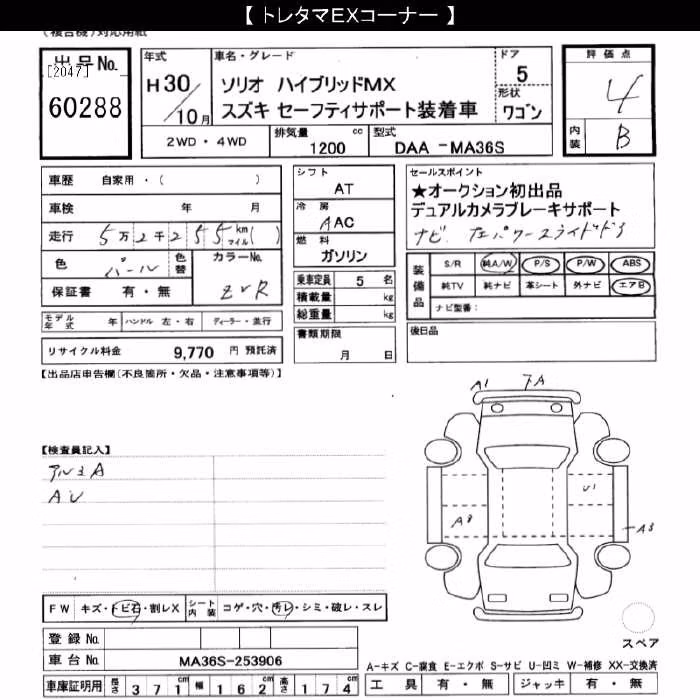 【 トレタマEXコーナー 】
(複合機)対応用紙
出品No.
[2047]
60288
年式
H 30/10月
車名・グレード
ソリオ ハイブリッドMX
スズキ セーフティサポート装着車
ドア
5
形状
ワゴン
評価点
4
内装
B
2WD・4WD
排気量 cc
1200
型式
DAA -MA36S
車歴 自家用・( )
車検 年 月
走行 5万2千255 km マイル( )
色 パール
色替
カラーNo.
ZVR
保証書 有・無
モデル年式 年 ハンドル 左・右 ディーラー・並行
リサイクル料金 9,770 円 預託済
シフト
AT
冷房
AAC
燃料
ガソリン
乗車定員 5 名
積載量 kg
総重量 kg
書類期限
月 日
セールスポイント
★オークション初出品
デュアルカメラブレーキサポート
ナビ 左パワースライドドア
装備品
S/R 純A/W P/S P/W ABS
純TV 純ナビ 革シート 外ナビ エアB
ナビ型番:
後日品
【出品店申告欄(不良箇所・欠品・注意事項等)】
【検査員記入】
アルミA
AU
A1
FA
U1
A3
スペア
FW キズ・トビ石・割レX
シート内装 コゲ・穴・汚レ・シミ・破レ・スレ
登録No.
車台No. MA36S-253906
車庫証明用 長さ 371cm 幅 162cm 高さ 174cm
A-キズ C-腐食 E-エクボ S-サビ U-凹ミ W-補修 XX-交換済
工具 有・無 ジャッキ 有・無